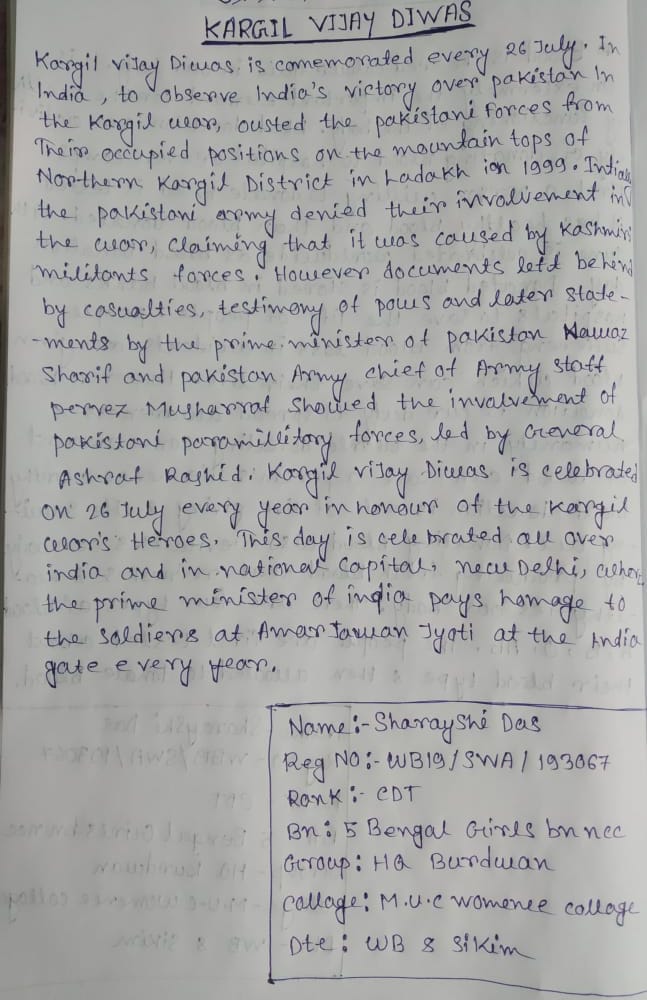 KARGIL VIJAY DIWAS
Kargil viJay Diwas is comemorated every 26 July. In
India, to observe India's victory over pakistan In
the Kargil war, ousted the pakistani Forces from
Their occupied positions on the mountain tops of
Northern Kargil District in Ladakh ion 1999.
the pakistani army denied their involvement in
the war, claiming that it was caused by Kashmiri
militants forces. However documents left behind
by casualties, testimony of pows and later state-
-ments by the prime minister of pakistan Nawaz
Sharif and pakistan Army chief of Army staff
pervez Musharraf showed the invalvement of
pakistani paramillitary forces, led by General
Ashraf Rashid. Kargil viJay Diwas is celebrated
on 26 July every year in honour of the Kargil
war's Heroes. This day is celebrated all over
india and in national Capital, new Delhi, where
the prime minister of india pays homage to
the soldiers at Amar Jawan Jyoti at the india
gate every year.
Name:- Sharayshi Das
Reg NO:- WB19/SWA/193067
Rank:- CDT
Bn: 5 Bengal Girls bn ncc
Group: HQ Burdwan
Collage: M.U.C womenee collage
Dte: WB & Sikim